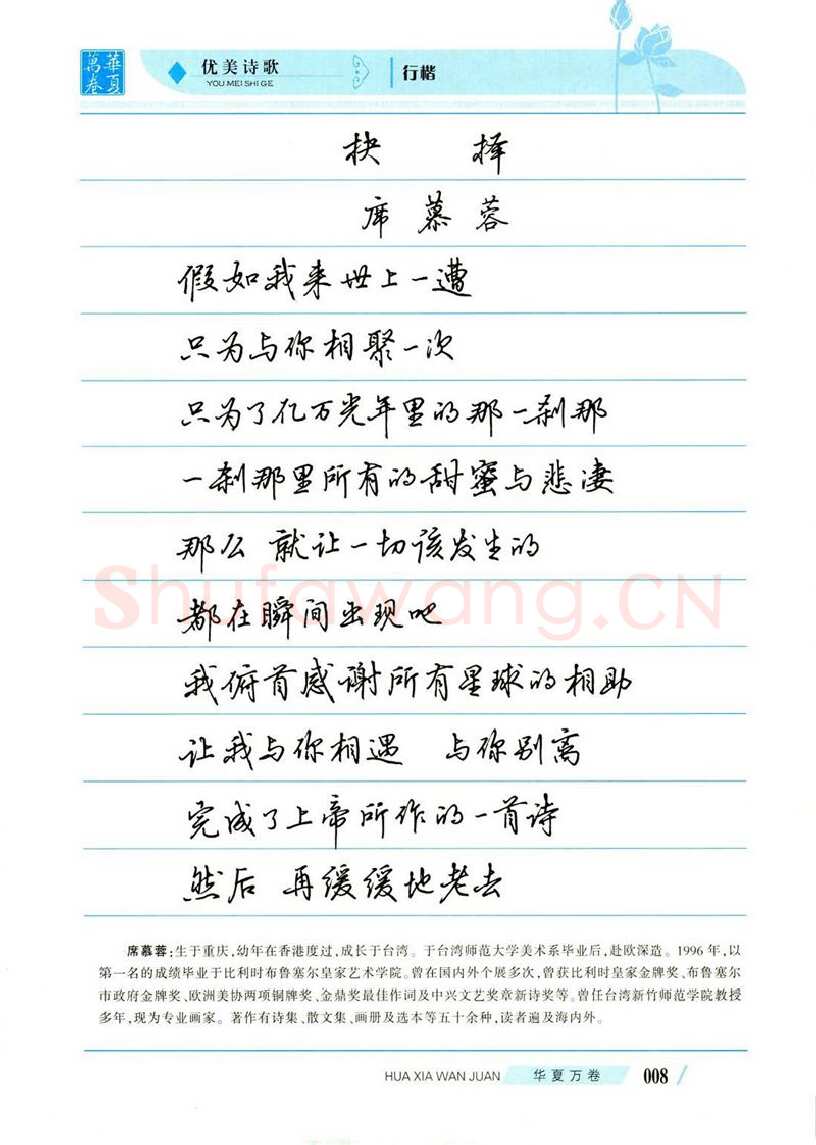 華夏
萬卷
优美诗歌
YOU MEI SHI GE
行楷
抉 择
席慕蓉
假如我来世上一遭
只为与你相聚一次
只为了亿万光年里的那一刹那
一刹那里所有的甜蜜与悲凄
那么 就让一切该发生的
都在瞬间出现吧
我俯首感谢所有星球的相助
让我与你相遇 与你别离
完成了上帝所作的一首诗
然后 再缓缓地老去
Shufawang.CN
席慕蓉:生于重庆,幼年在香港度过,成长于台湾。于台湾师范大学美术系毕业后,赴欧深造。1996年,以
第一名的成绩毕业于比利时布鲁塞尔皇家艺术学院。曾在国内外个展多次,曾获比利时皇家金牌奖、布鲁塞尔
市政府金牌奖、欧洲美协两项铜牌奖、金鼎奖最佳作词及中兴文艺奖章新诗奖等。曾任台湾新竹师范学院教授
多年,现为专业画家。著作有诗集、散文集、画册及选本等五十余种,读者遍及海内外。
HUA XIA WAN JUAN 华夏万卷 008